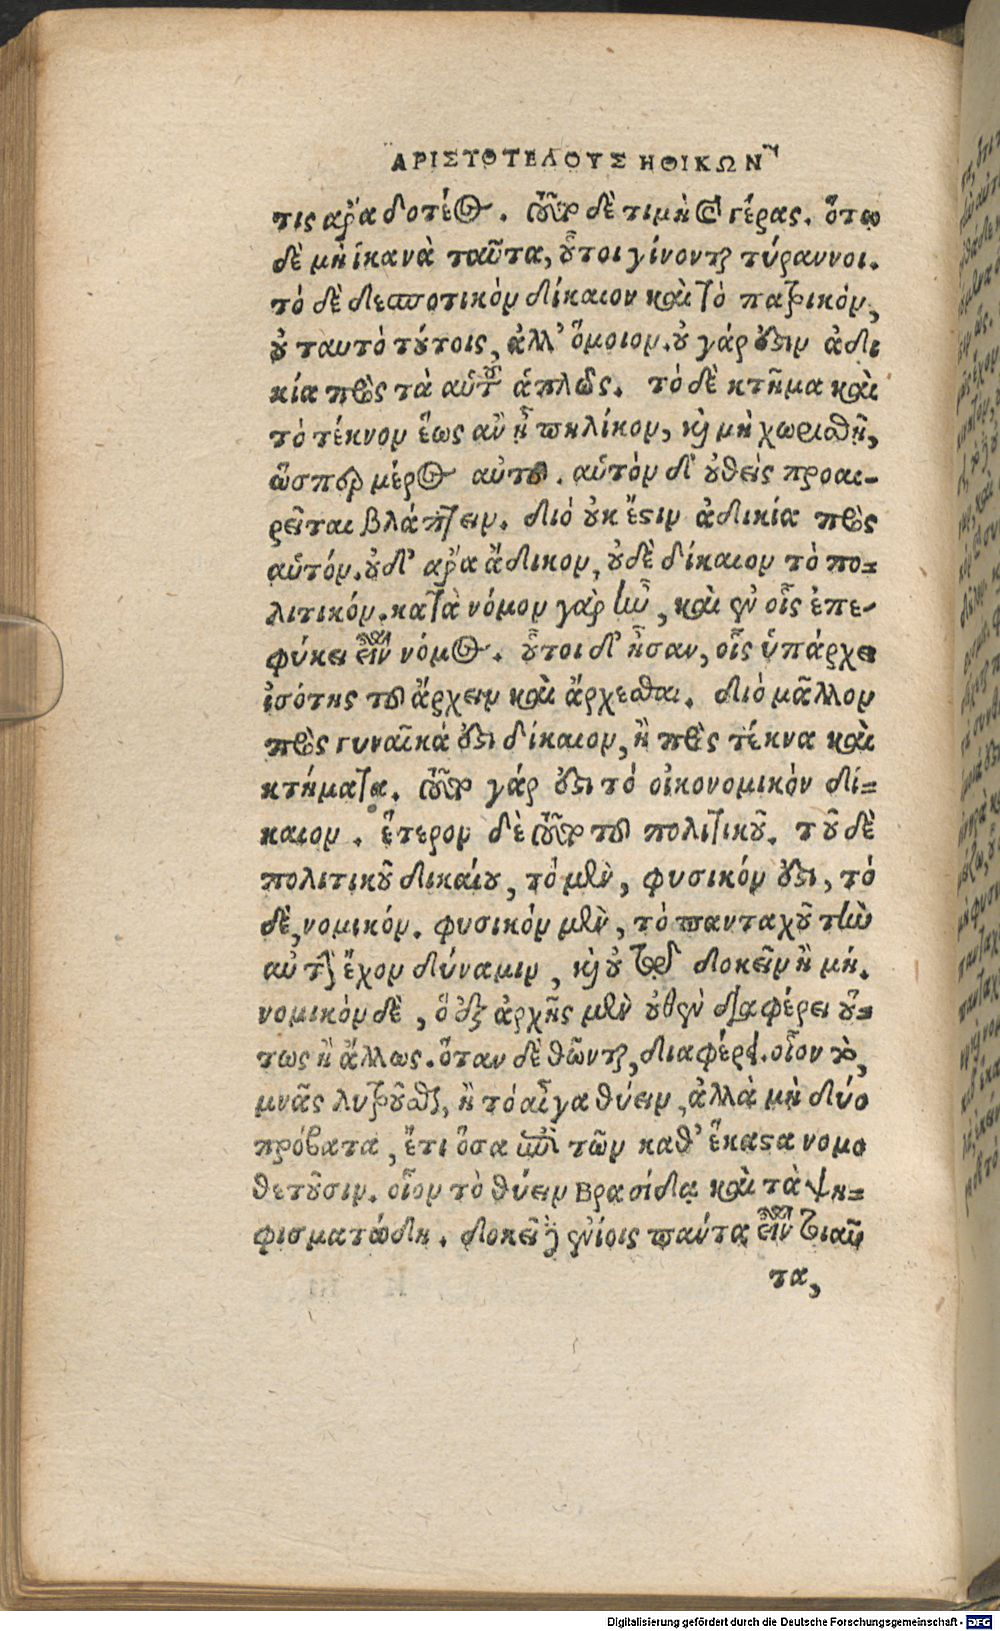 ΑΡΙΣΤΟΤΕΛΟΥΣ ΗΘΙΚΩΝ
τις ἄρα δοτέος. τοῦτο δὲ τιμὴ καὶ γέρας. ὅτῳ
δὲ μὴ ἱκανὰ ταῦτα, οὗτοι γίνονται τύραννοι.
τὸ δὲ δεσποτικὸν δίκαιον καὶ τὸ πατρικὸν,
οὐ ταυτὸ τούτοις, ἀλλ' ὅμοιον. οὐ γάρ ἐστιν ἀδι
κία πρὸς τὰ αὑτοῦ ἁπλῶς. τὸ δὲ κτῆμα καὶ
τὸ τέκνον ἕως ἂν ᾖ πηλίκον, καὶ μὴ χωρισθῇ,
ὥσπερ μέρος αὐτοῦ. αὑτὸν δ' οὐθεὶς προαι-
ρεῖται βλάπτειν. διὸ οὐκ ἔστιν ἀδικία πρὸς
αὑτόν. οὐδ' ἄρα ἄδικον, οὐδὲ δίκαιον τὸ πο-
λιτικόν. κατὰ νόμον γὰρ ἦν, καὶ ἐν οἷς ἐπε-
φύκει εἶναι νόμος. οὗτοι δ' ἦσαν, οἷς ὑπάρχει
ἰσότης τοῦ ἄρχειν καὶ ἄρχεσθαι. διὸ μᾶλλον
πρὸς γυναῖκά ἐστι δίκαιον, ἢ πρὸς τέκνα καὶ
κτήματα. τοῦτο γάρ ἐστι τὸ οἰκονομικὸν δί-
καιον. ἕτερον δὲ τοῦτο τοῦ πολιτικοῦ. τοῦ δὲ
πολιτικοῦ δικαίου, τὸ μὲν, φυσικόν ἐστι, τὸ
δὲ, νομικόν. φυσικὸν μὲν, τὸ πανταχοῦ τὴν
αὐτὴν ἔχον δύναμιν, καὶ οὐ τῷ δοκεῖν ἢ μή.
νομικὸν δὲ, ὃ ἐξ ἀρχῆς μὲν οὐθὲν διαφέρει οὕ-
τως ἢ ἄλλως. ὅταν δὲ θῶνται, διαφέρει. οἷον τὸ,
μνᾶς λυτροῦσθαι, ἢ τὸ αἶγα θύειν, ἀλλὰ μὴ δύο
πρόβατα, ἔτι ὅσα ἐπὶ τῶν καθ' ἕκαστα νομο
θετοῦσιν. οἷον τὸ θύειν Βρασίδᾳ καὶ τὰ ψη-
φισματώδη. δοκεῖ δὲ ἐνίοις πάντα εἶναι τοιαῦ
τα,
Digitalisierung gefördert durch die Deutsche Forschungsgemeinschaft - DFG